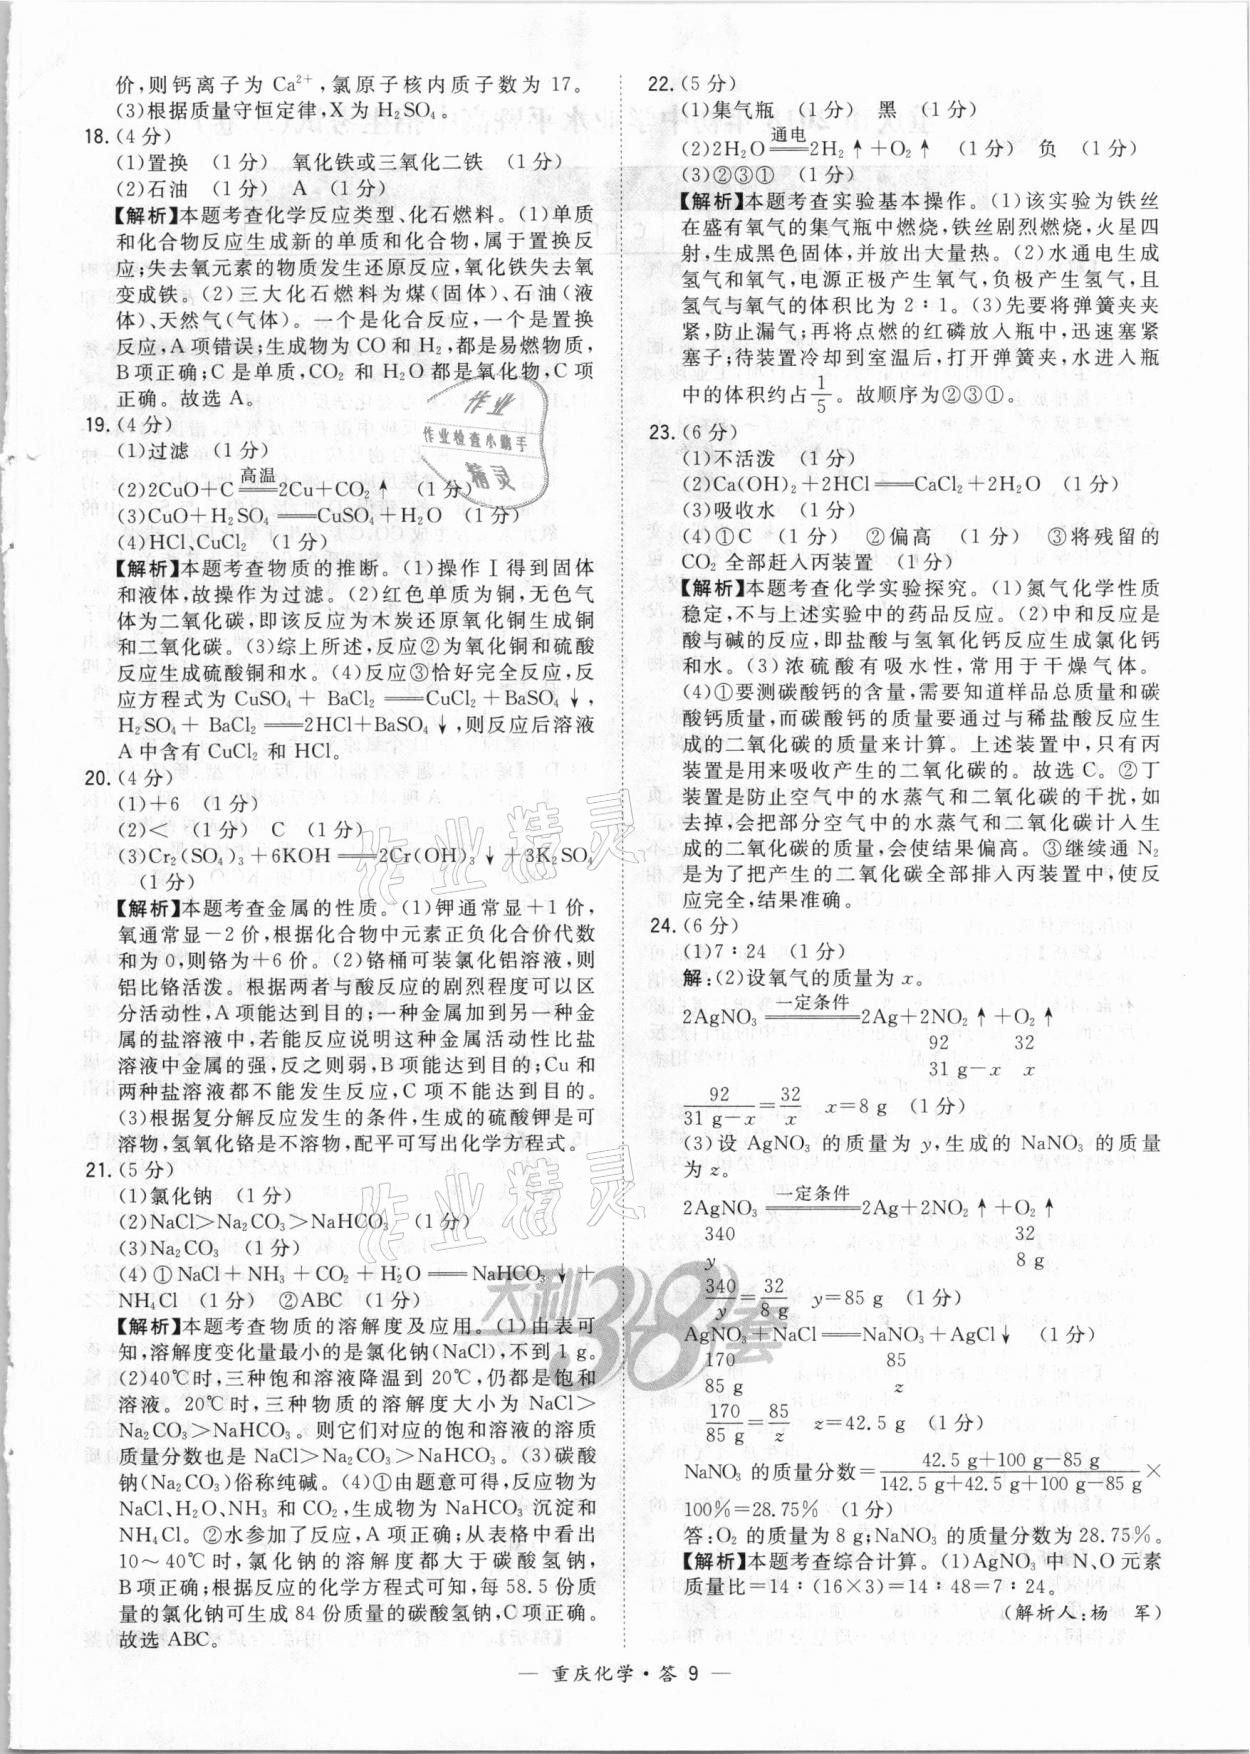 价,则钙离子为 Ca²⁺,氯原子核内质子数为 17。
(3)根据质量守恒定律,X为 H₂SO₄。
18.(4分)
(1)置换 (1分) 氧化铁或三氧化二铁 (1分)
(2)石油 (1分) A (1分)
【解析】本题考查化学反应类型、化石燃料。(1)单质
和化合物反应生成新的单质和化合物,属于置换反
应;失去氧元素的物质发生还原反应,氧化铁失去氧
变成铁。(2)三大化石燃料为煤(固体)、石油(液
体)、天然气(气体)。一个是化合反应,一个是置换
反应,A项错误;生成物为CO和H₂,都是易燃物质,
B项正确;C是单质,CO₂ 和 H₂O都是氧化物,C项
正确。故选 A。
19.(4分)
(1)过滤 (1分)
(2)2CuO+C ══高温══ 2Cu+CO₂↑ (1分)
(3)CuO+H₂SO₄ ══ CuSO₄+H₂O (1分)
(4)HCl、CuCl₂ (1分)
【解析】本题考查物质的推断。(1)操作Ⅰ得到固体
和液体,故操作为过滤。(2)红色单质为铜,无色气
体为二氧化碳,即该反应为木炭还原氧化铜生成铜
和二氧化碳。(3)综上所述,反应②为氧化铜和硫酸
反应生成硫酸铜和水。(4)反应③恰好完全反应,反
应方程式为 CuSO₄+ BaCl₂ ══ CuCl₂+BaSO₄↓,
H₂SO₄+ BaCl₂ ══ 2HCl+BaSO₄↓,则反应后溶液
A中含有 CuCl₂ 和 HCl。
20.(4分)
(1)+6 (1分)
(2)< (1分) C (1分)
(3)Cr₂(SO₄)₃+6KOH ══ 2Cr(OH)₃↓+3K₂SO₄
(1分)
【解析】本题考查金属的性质。(1)钾通常显+1价,
氧通常显-2价,根据化合物中元素正负化合价代数
和为0,则铬为+6价。(2)铬桶可装氯化铝溶液,则
铝比铬活泼。根据两者与酸反应的剧烈程度可以区
分活动性,A项能达到目的;一种金属加到另一种金
属的盐溶液中,若能反应说明这种金属活动性比盐
溶液中金属的强,反之则弱,B项能达到目的;Cu和
两种盐溶液都不能发生反应,C项不能达到目的。
(3)根据复分解反应发生的条件,生成的硫酸钾是可
溶物,氢氧化铬是不溶物,配平可写出化学方程式。
21.(5分)
(1)氯化钠 (1分)
(2)NaCl>Na₂CO₃>NaHCO₃ (1分)
(3)Na₂CO₃ (1分)
(4)①NaCl+NH₃+CO₂+H₂O ══ NaHCO₃↓+
NH₄Cl (1分) ②ABC (1分)
【解析】本题考查物质的溶解度及应用。(1)由表可
知,溶解度变化量最小的是氯化钠(NaCl),不到1 g。
(2)40℃时,三种饱和溶液降温到20℃,仍都是饱和
溶液。20℃时,三种物质的溶解度大小为NaCl>
Na₂CO₃>NaHCO₃。则它们对应的饱和溶液的溶质
质量分数也是 NaCl>Na₂CO₃>NaHCO₃。(3)碳酸
钠(Na₂CO₃)俗称纯碱。(4)①由题意可得,反应物为
NaCl、H₂O、NH₃ 和 CO₂,生成物为 NaHCO₃ 沉淀和
NH₄Cl。②水参加了反应,A项正确;从表格中看出
10～40℃时,氯化钠的溶解度都大于碳酸氢钠,
B项正确;根据反应的化学方程式可知,每58.5份质
量的氯化钠可生成84份质量的碳酸氢钠,C项正确。
故选 ABC。
22.(5分)
(1)集气瓶 (1分) 黑 (1分)
(2)2H₂O ══通电══ 2H₂↑+O₂↑ (1分) 负 (1分)
(3)②③① (1分)
【解析】本题考查实验基本操作。(1)该实验为铁丝
在盛有氧气的集气瓶中燃烧,铁丝剧烈燃烧,火星四
射,生成黑色固体,并放出大量热。(2)水通电生成
氢气和氧气,电源正极产生氧气,负极产生氢气,且
氢气与氧气的体积比为 2∶1。(3)先要将弹簧夹夹
紧,防止漏气;再将点燃的红磷放入瓶中,迅速塞紧
塞子;待装置冷却到室温后,打开弹簧夹,水进入瓶
中的体积约占1/5。故顺序为②③①。
23.(6分)
(1)不活泼 (1分)
(2)Ca(OH)₂+2HCl ══ CaCl₂+2H₂O (1分)
(3)吸收水 (1分)
(4)①C (1分) ②偏高 (1分) ③将残留的
CO₂ 全部赶入丙装置 (1分)
【解析】本题考查化学实验探究。(1)氮气化学性质
稳定,不与上述实验中的药品反应。(2)中和反应是
酸与碱的反应,即盐酸与氢氧化钙反应生成氯化钙
和水。(3)浓硫酸有吸水性,常用于干燥气体。
(4)①要测碳酸钙的含量,需要知道样品总质量和碳
酸钙质量,而碳酸钙的质量要通过与稀盐酸反应生
成的二氧化碳的质量来计算。上述装置中,只有丙
装置是用来吸收产生的二氧化碳的。故选C。②丁
装置是防止空气中的水蒸气和二氧化碳的干扰,如
去掉,会把部分空气中的水蒸气和二氧化碳计入生
成的二氧化碳的质量,会使结果偏高。③继续通 N₂
是为了把产生的二氧化碳全部排入丙装置中,使反
应完全,结果准确。
24.(6分)
(1)7∶24 (1分)
解:(2)设氧气的质量为 x。
2AgNO₃ ══一定条件══ 2Ag+2NO₂↑+O₂↑
92 32
31 g-x x
92/(31 g-x)=32/x x=8 g (1分)
(3)设 AgNO₃ 的质量为 y,生成的 NaNO₃ 的质量
为 z。
2AgNO₃ ══一定条件══ 2Ag+2NO₂↑+O₂↑
340 32
y 8 g
340/y=32/8 g y=85 g (1分)
AgNO₃+NaCl ══ NaNO₃+AgCl↓ (1分)
170 85
85 g z
170/85 g=85/z z=42.5 g (1分)
NaNO₃ 的质量分数=(42.5 g+100 g-85 g)/(142.5 g+42.5 g+100 g-85 g)×
100%=28.75% (1分)
答:O₂ 的质量为 8 g;NaNO₃ 的质量分数为28.75%。
【解析】本题考查综合计算。(1)AgNO₃ 中 N、O元素
质量比=14∶(16×3)=14∶48=7∶24。
(解析人:杨 军)
— 重庆化学·答 9 —
作业
作业检查小助手
精灵
作业精灵
作业精灵
天利38套